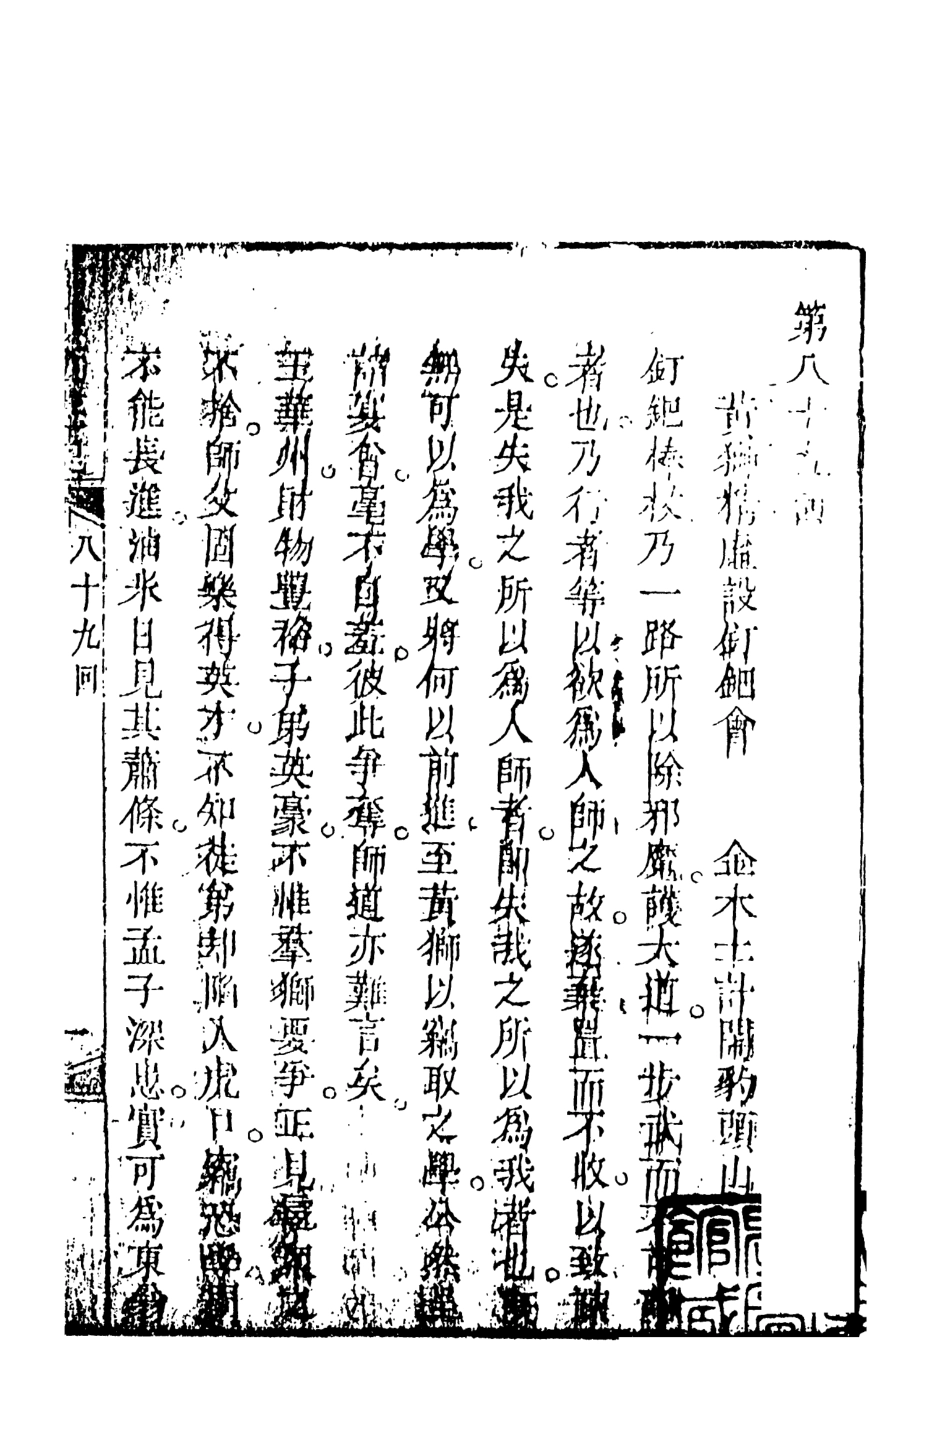 第八十九回
黃獅精虛設釘鈀會　金木土計鬧豹頭山
釘鈀棒杖乃一路所以除邪魔護大道一步武而不可
者也乃行者等以欲為人師之故遂棄置而不收以致
失是失我之所以為人師者即失我之所以為我者也
無可以為學又將何以前進至黃獅以竊取之學公然
請宴會毫不自羞彼此爭奪師道亦難言矣
玉華州財物豐裕子弟英豪不惟羣獅要爭正見
不捨師父固樂得英才不知徒弟却陷入虎口竊恐學問
不能長進油米日見其蕭條不惟孟子深患實可為東翁
八十九回
一